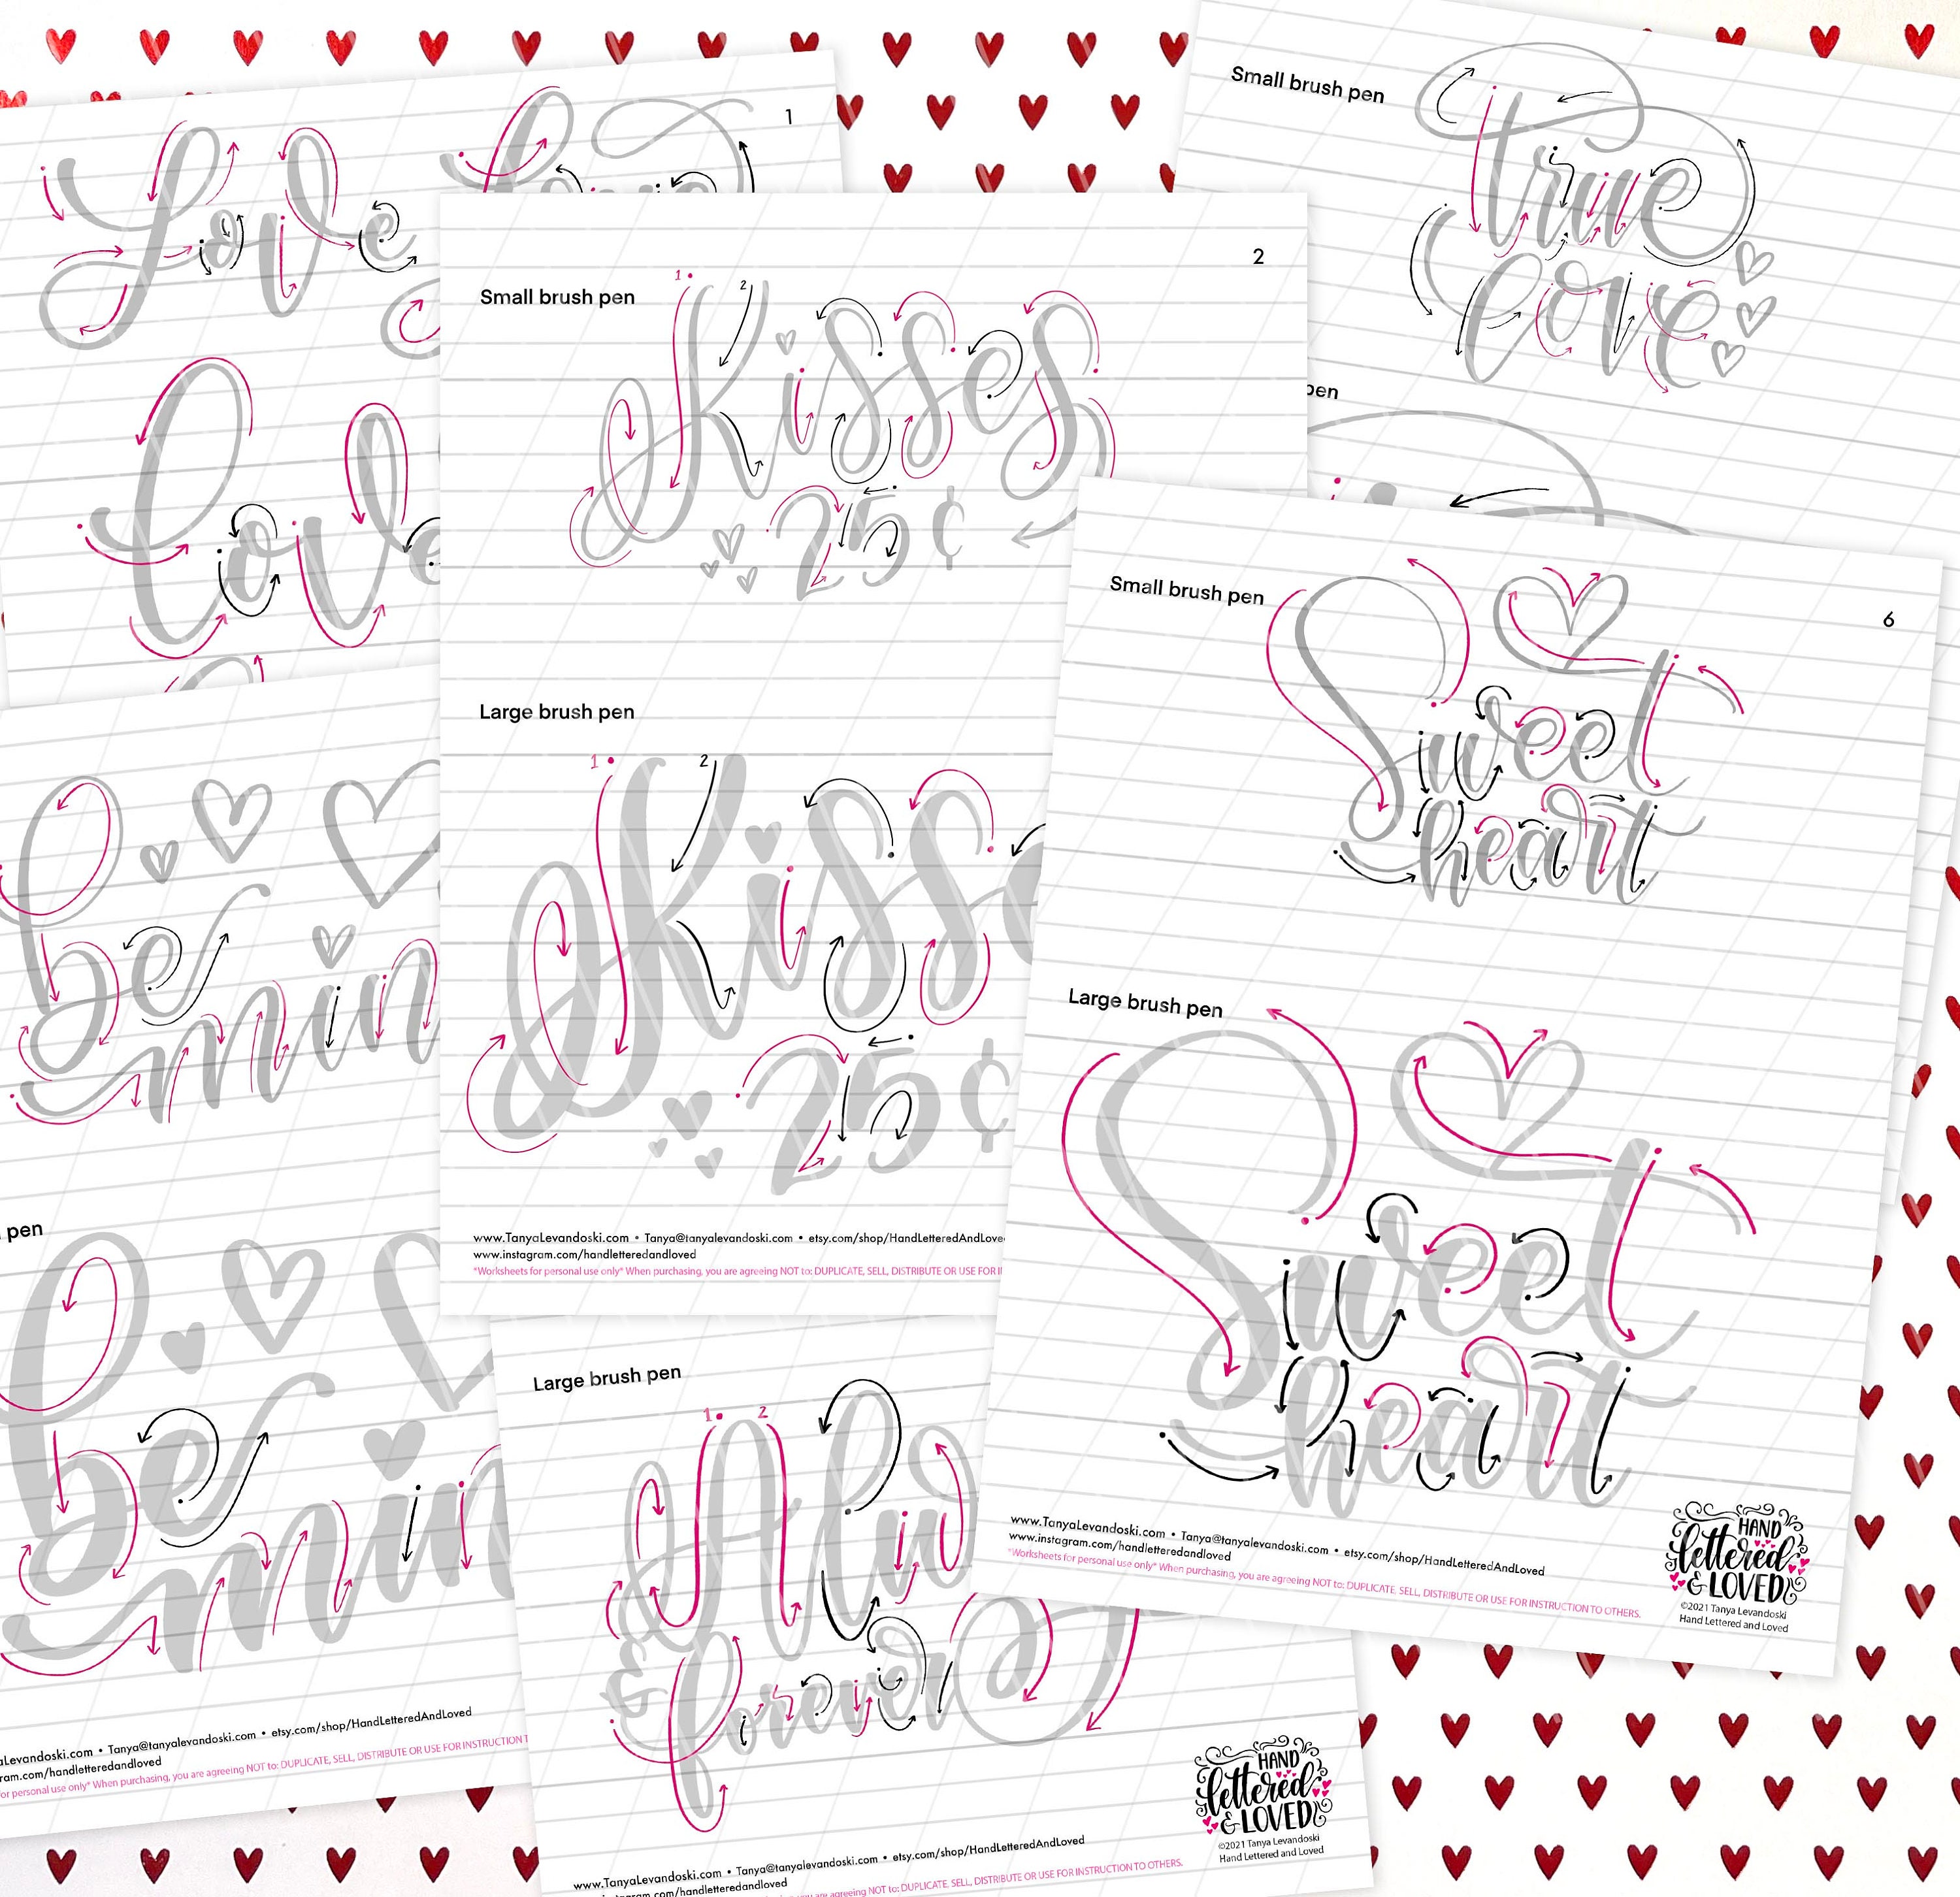 1
Love
Love
Love
2
Small brush pen
1 2
Kisses
25¢
Large brush pen
1 2
Kisse
25¢
www.TanyaLevandoski.com • Tanya@tanyalevandoski.com • etsy.com/shop/HandLetteredAndLove
www.instagram.com/handletteredandloved
*Worksheets for personal use only* When purchasing, you are agreeing NOT to: DUPLICATE, SELL, DISTRIBUTE OR USE FOR I
Small brush pen
true
love
pen
6
Small brush pen
Sweet
heart
Large brush pen
Sweet
heart
www.TanyaLevandoski.com • Tanya@tanyalevandoski.com • etsy.com/shop/HandLetteredAndLoved
www.instagram.com/handletteredandloved
*Worksheets for personal use only* When purchasing, you are agreeing NOT to: DUPLICATE, SELL, DISTRIBUTE OR USE FOR INSTRUCTION TO OTHERS.
HAND
lettered
& LOVED
©2021 Tanya Levandoski
Hand Lettered and Loved
be
min
pen
be
min
aLevandoski.com • Tanya@tanyalevandoski.com • etsy.com/shop/HandLetteredAndLoved
ram.com/handletteredandloved
or personal use only* When purchasing, you are agreeing NOT to: DUPLICATE, SELL, DISTRIBUTE OR USE FOR INSTRUCTION T
Large brush pen
1 2
Alw
& forever
www.TanyaLevandoski.com • Tanya@tanyalevandoski.com • etsy.com/shop/HandLetteredAndLoved
instagram.com/handletteredandloved
you are agreeing NOT to: DUPLICATE, SELL, DISTRIBUTE OR USE FOR INSTRUCTION TO OTHERS.
HAND
lettered
& LOVED
©2021 Tanya Levandoski
Hand Lettered and Loved